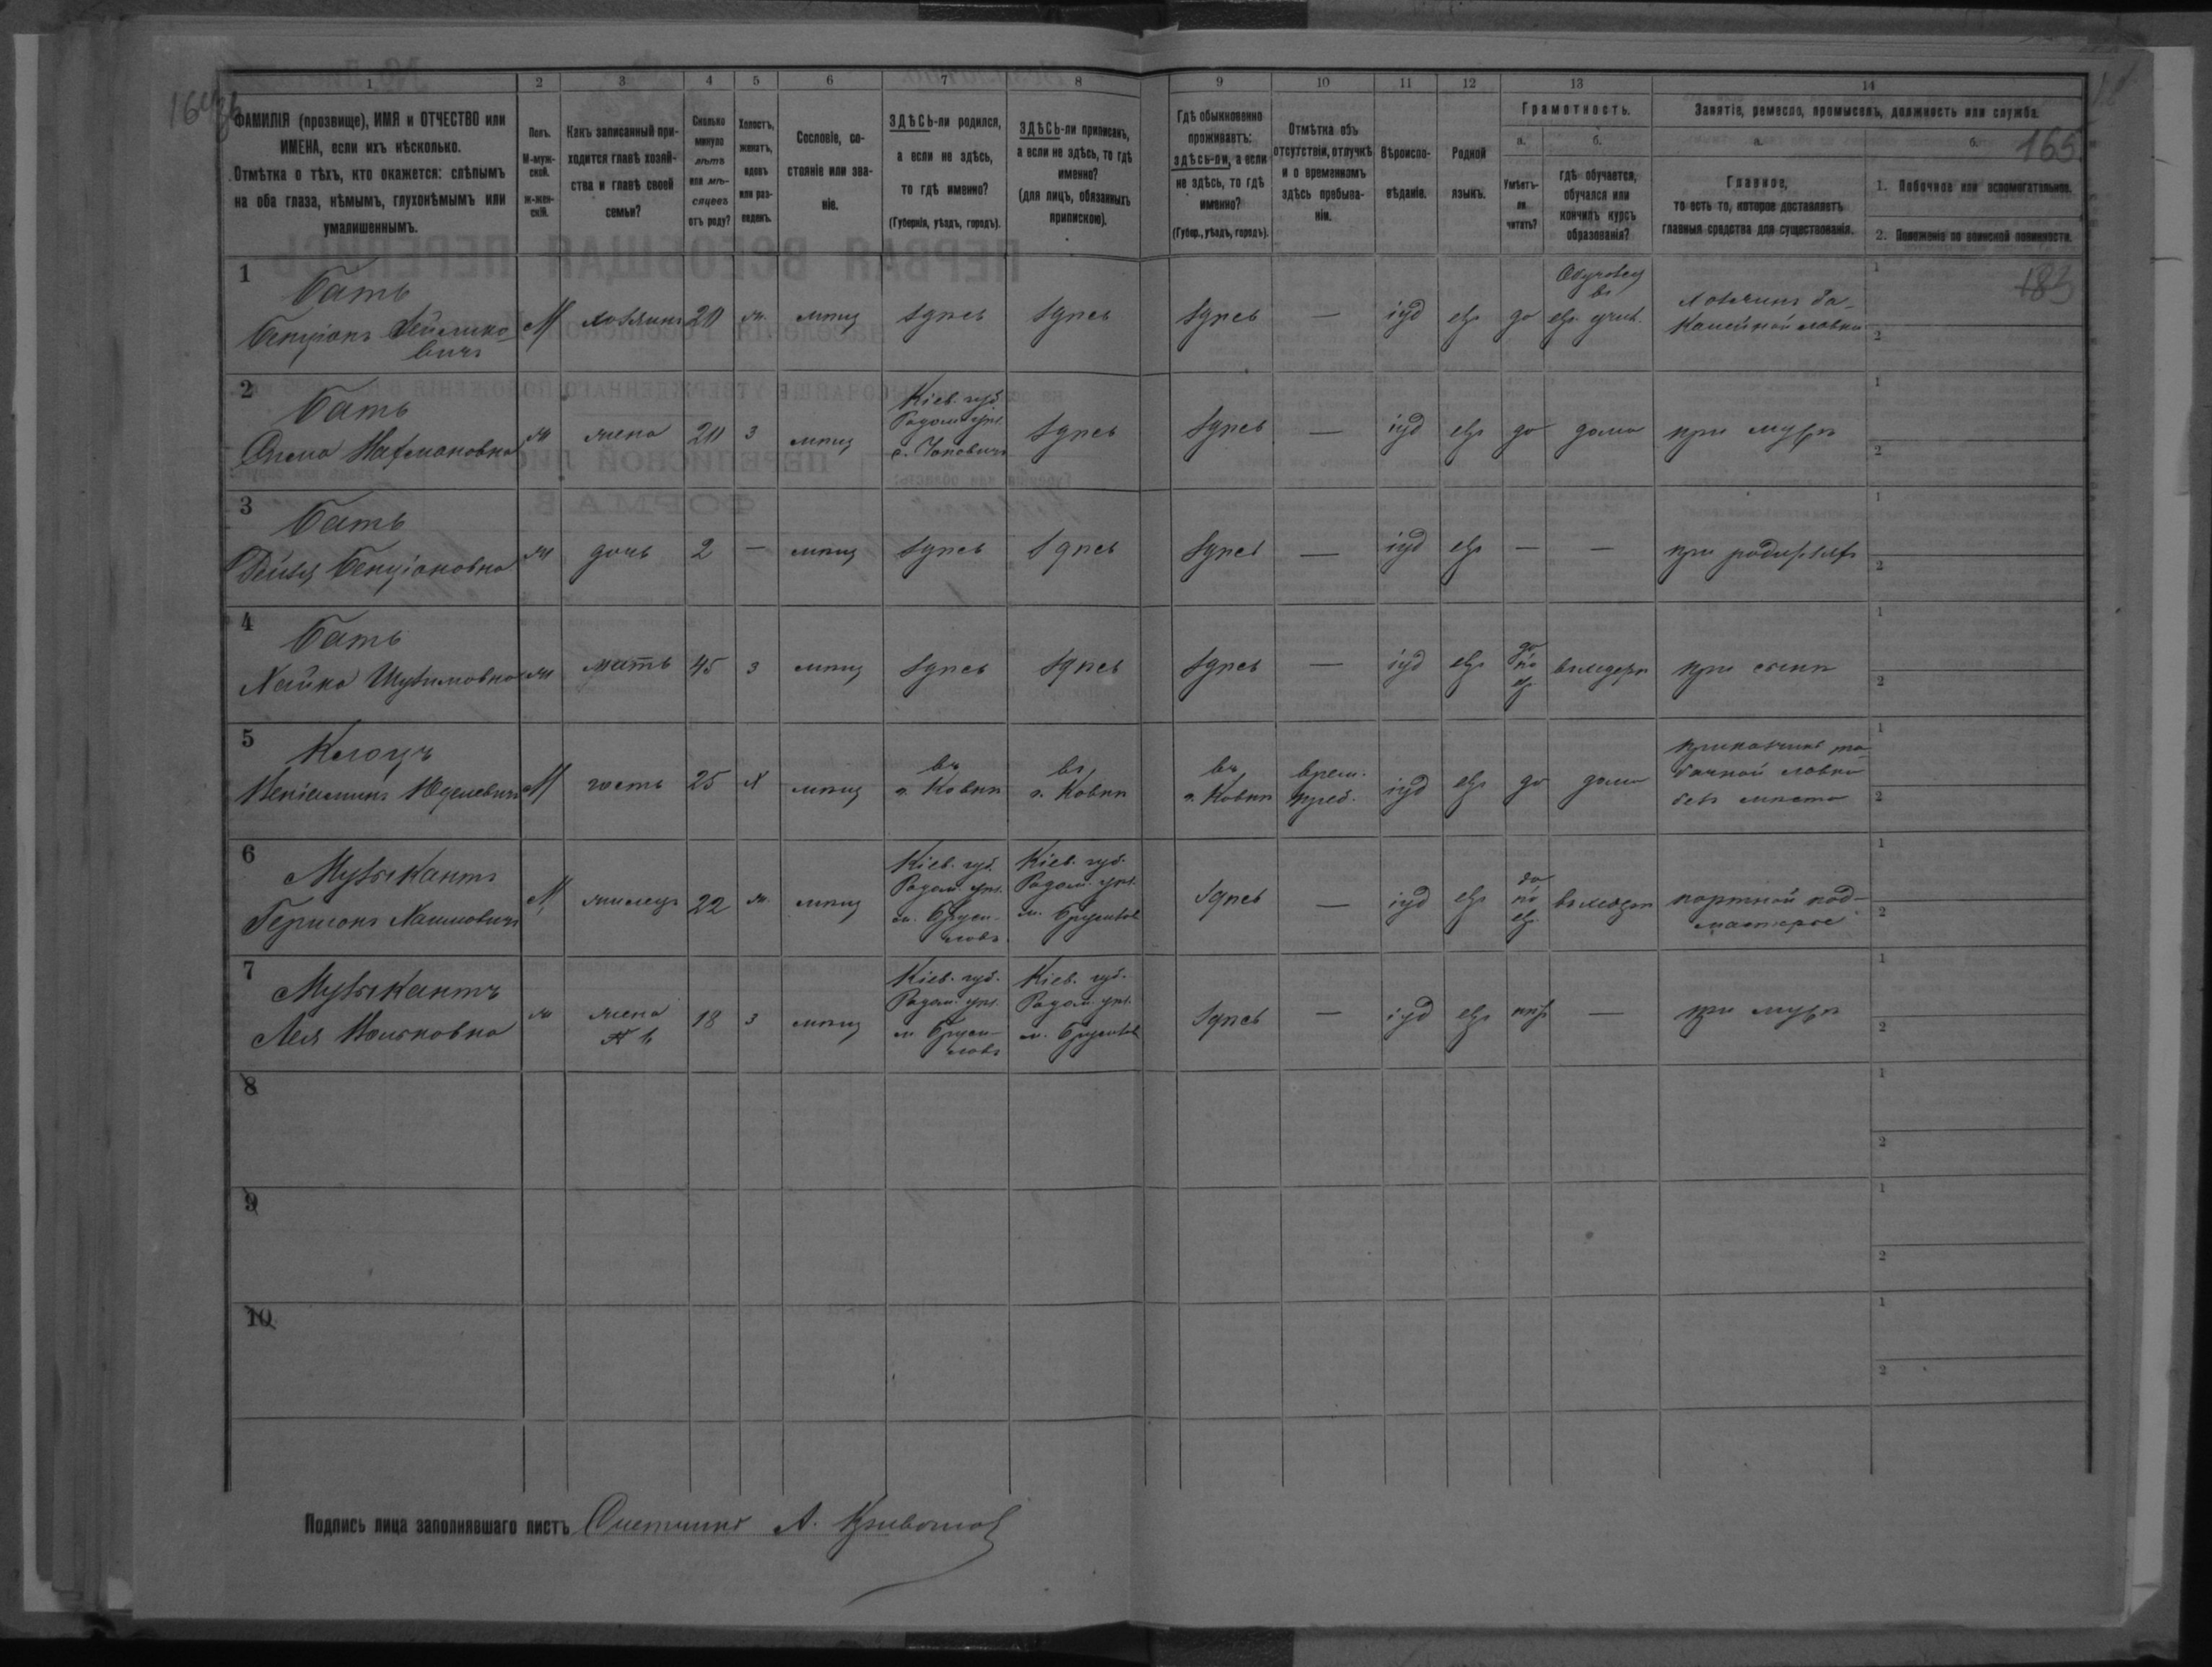 1 2 3 4 5 6 7 8 9 10 11 12 13 14
ФАМИЛІЯ (прозвище), ИМЯ и ОТЧЕСТВО или
ИМЕНА, если ихъ нѣсколько.
Отмѣтка о тѣхъ, кто окажется: слѣпымъ
на оба глаза, нѣмымъ, глухонѣмымъ или
умалишеннымъ.
Полъ.
М-муж-
ской.
ж-жен-
скій.
Какъ записанный при-
ходится главѣ хозяй-
ства и главѣ своей
семьи?
Сколько
минуло
лѣтъ
или мѣ-
сяцевъ
отъ роду?
Холостъ,
женатъ,
вдовъ
или раз-
веденъ.
Сословіе, со-
стояніе или зва-
ніе.
ЗДѢСЬ-ли родился,
а если не здѣсь,
то гдѣ именно?
(Губернія, уѣздъ, городъ).
ЗДѢСЬ-ли приписанъ,
а если не здѣсь, то гдѣ
именно?
(для лицъ, обязанныхъ
припискою).
Гдѣ обыкновенно
проживаетъ:
здѣсь-ли, а если
не здѣсь, то гдѣ
именно?
(Губер., уѣздъ, городъ).
Отмѣтка объ
отсутствіи, отлучкѣ
и о временномъ
здѣсь пребыва-
ніи.
Вѣроиспо-
вѣданіе.
Родной
языкъ.
Грамотность.
а.
Умѣетъ-
ли
читать?
б.
гдѣ обучается,
обучался или
кончилъ курсъ
образованія?
Занятіе, ремесло, промыселъ, должность или служба.
а.
Главное,
то есть то, которое доставляетъ
главныя средства для существованія.
б.
165
1. Побочное или вспомогательное.
2. Положеніе по воинской повинности.
183
1
Бать
Бенціонъ
вичъ
М хозяинъ 20 ж. мѣщ здѣсь здѣсь здѣсь — іуд евр да
въ
евр. учил.
хозяинъ ба-
калейной лавки
1
2
2
Бать
Нахмановна
ж жена 20 з мѣщ
Кіев. губ.
Радом. уѣз.
здѣсь здѣсь — іуд евр да дома при мужѣ
1
2
3
Бать
Бенціоновна
ж дочь 2 — мѣщ здѣсь здѣсь здѣсь — іуд евр — — при родителях
1
2
4
Бать
Хайка
ж мать 45 з мѣщ здѣсь здѣсь здѣсь — іуд евр
да
по
евр
въ хедерѣ при сынѣ
1
2
5
Клоцъ
Веніаминъ Юделевичъ
М гость 25 х мѣщ
въ
г. Ковнѣ
въ
г. Ковнѣ
въ
г. Ковнѣ
врем.
преб.
іуд евр да дома
приказчикъ та-
бачной лавки
безъ мѣста
1
2
6
Музыкантъ
Гершонъ Хаимовичъ
М жилецъ 22 ж. мѣщ
Кіев. губ.
Радом. уѣз.
м. Бруси-
ловъ
Кіев. губ.
Радом. уѣз.
м. Брусилов
здѣсь — іуд евр
да
по
евр.
въ хедерѣ
портной под-
мастерье
1
2
7
Музыкантъ
Лея
ж
жена
№ 6
18 з мѣщ
Кіев. губ.
Радом. уѣз.
м. Бруси-
ловъ
Кіев. губ.
Радом. уѣз.
м. Брусилов
здѣсь — іуд евр нѣт — при мужѣ
1
2
8
1
2
9
1
2
10
1
2
Подпись лица заполнявшаго листъ Счетчикъ А.